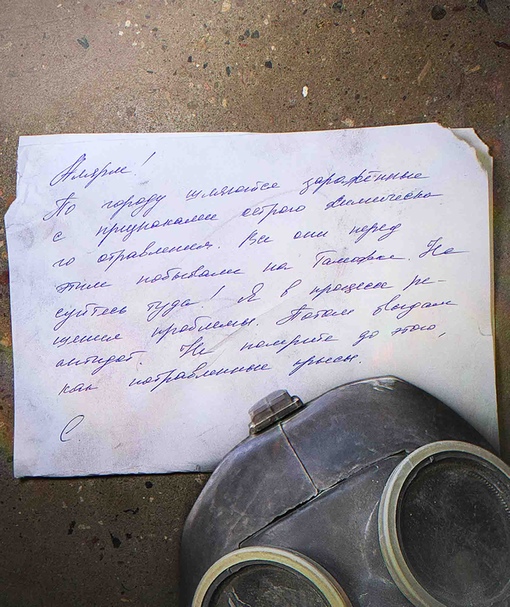 Алярм!
По городу шляются заражённые
с признаками острого химическо
го отравления. Все они перед
этим побывали на Тамофке. Не
суйтесь туда! Я в процессе ре-
шения проблемы. Потом выдам
антидот. Не помрите до этого,
как потравленные крысы.
С.